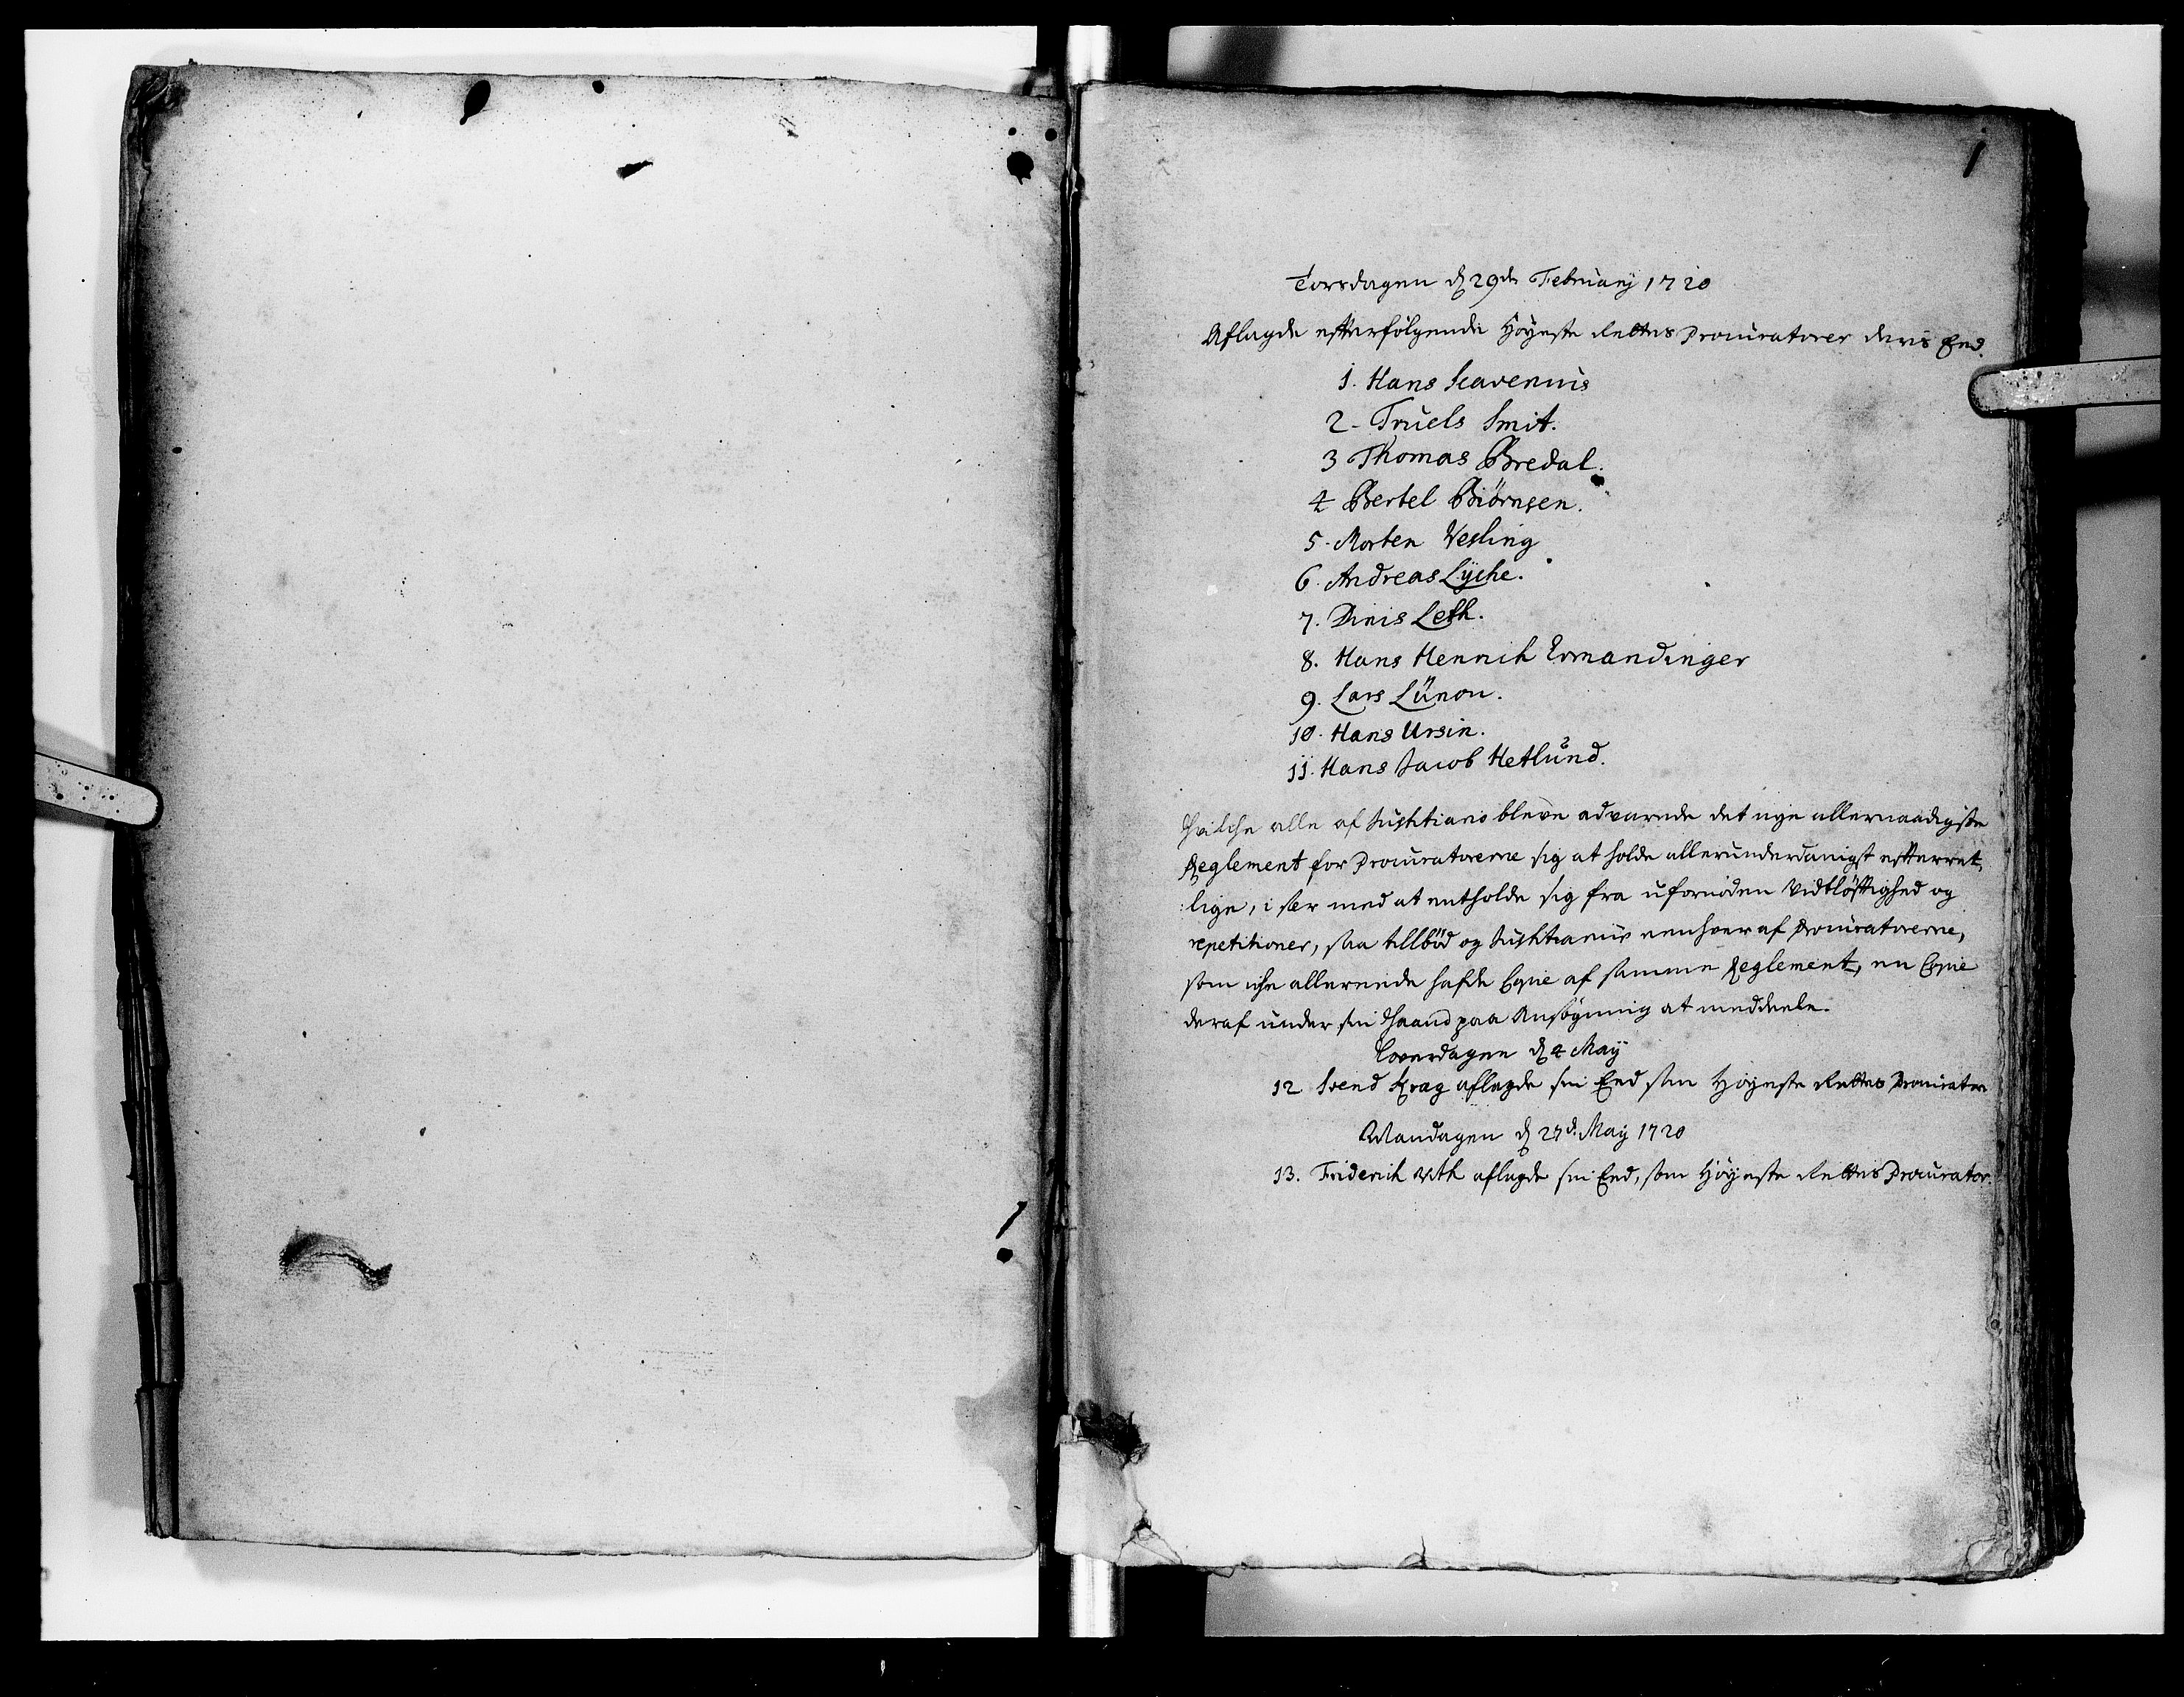 1
Torsdagen d 29de February 1720
Aflagde efterfølgende Høyeste Rettes Procuratorer deris Eed.
1. Hans Scavenius
2. Truels Smit.
3 Thomas Bredal.
4 Bertel Biörnsen.
5. Morten Vesling
6. Andreas Lyche.
7. Dinis Leth.
8. Hans Henrich Ermandinger
9. Lars Lünou.
10. Hans Ursin.
11. Hans Jacob Hetlund.
Hvilche alle af Justitiario bleve advarede det nye allernaadigste
Reglement for Procuratorerne sig at holde allerunderdanigst efterret,
lige, i sær med at entholde sig fra ufornöden Vidtlöftighed og
repetitioner, saa tillböd og Justitiarius eenhver af Procuratorerne,
som iche allereede hafde Copie af samme Reglement, en Copie
deraf under sin Haand paa Ansögning at meddeele.
Löverdagen d 4 May
12 Svend Krag aflagde sin Eed som Höyeste Rettes Procurator
Mandagen d 27d. May 1720
13. Friderich Vith aflagde sin Eed, som Höyeste Rettes Procurator.